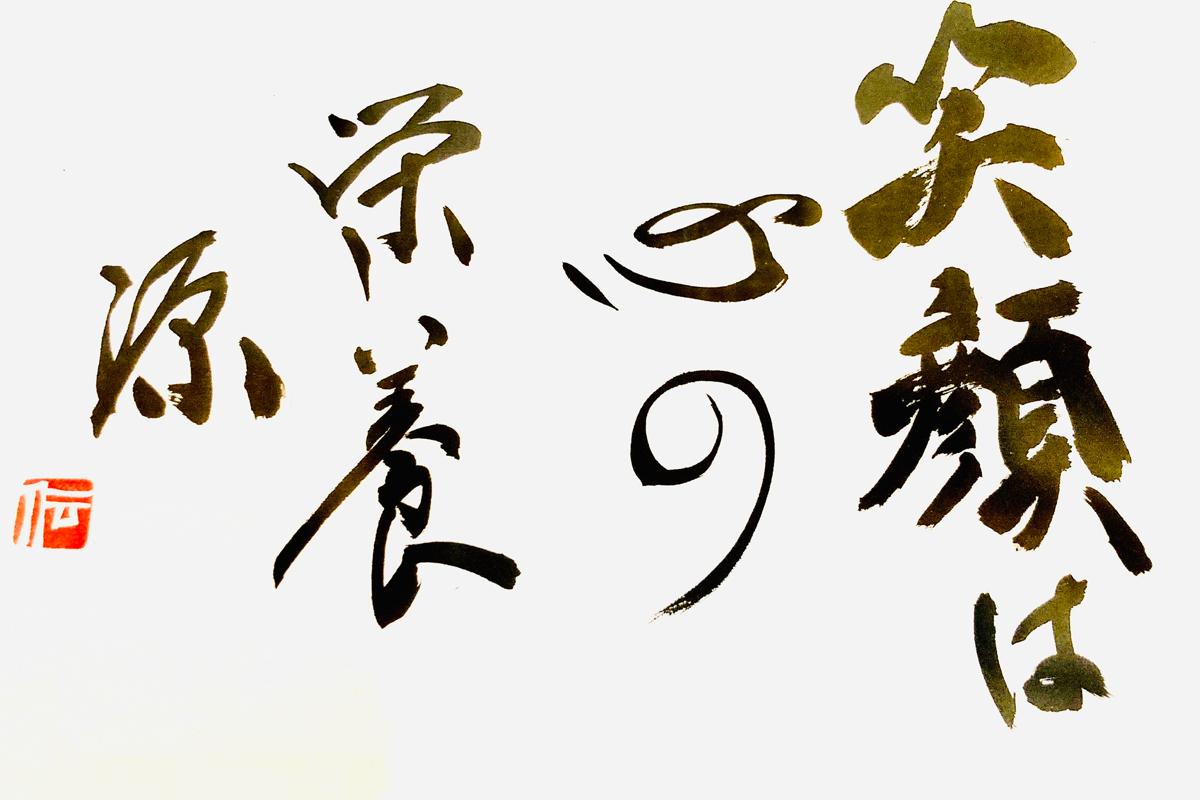 笑顔は
心の
栄養
源
伝